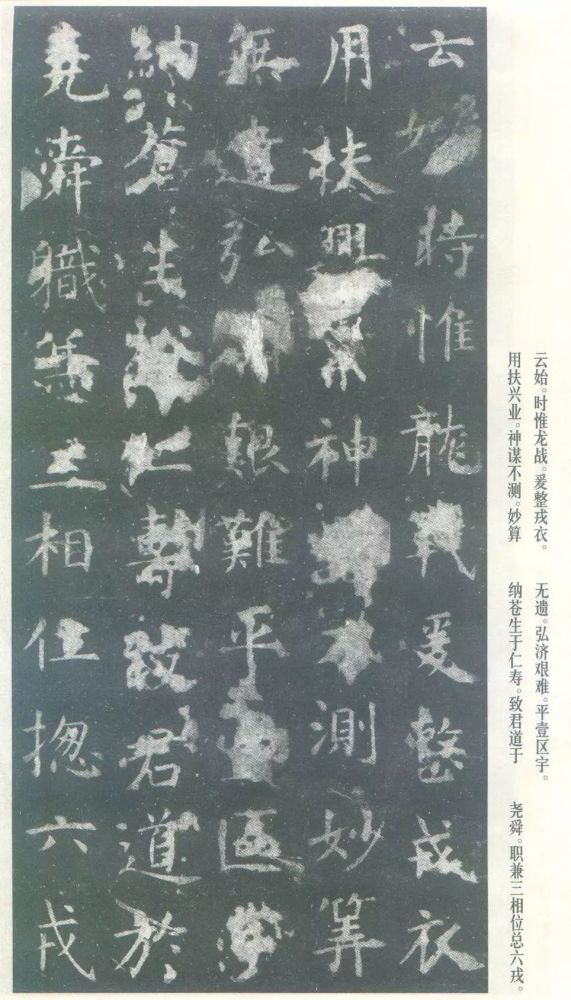 云始時惟龍戰爰整戎衣
用扶興業神謀不測妙筭
無遺弘濟艱難平壹區宇
納蒼生於仁壽致君道於
堯舜職兼三相位揔六戎
云始。时惟龙战。爰整戎衣。
用扶兴业。神谋不测。妙算
无遗。弘济艰难。平壹区宇。
纳苍生于仁寿。致君道于
尧舜。职兼三相位总六戎。